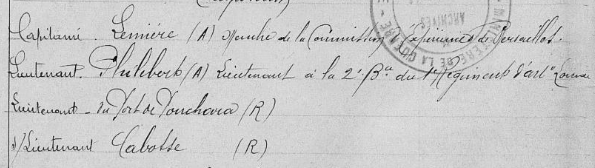 Capitaine Lemière (A) Membre de la Commission d'expériences de Versailles
Lieutenant Philibert (A) Lieutenant à la 2e Bie du 1er Régiment d'artie
Lieutenant du Port de (R)
s/Lieutenant Cabosse (R)
ARCHIVES
DE LA GUERRE